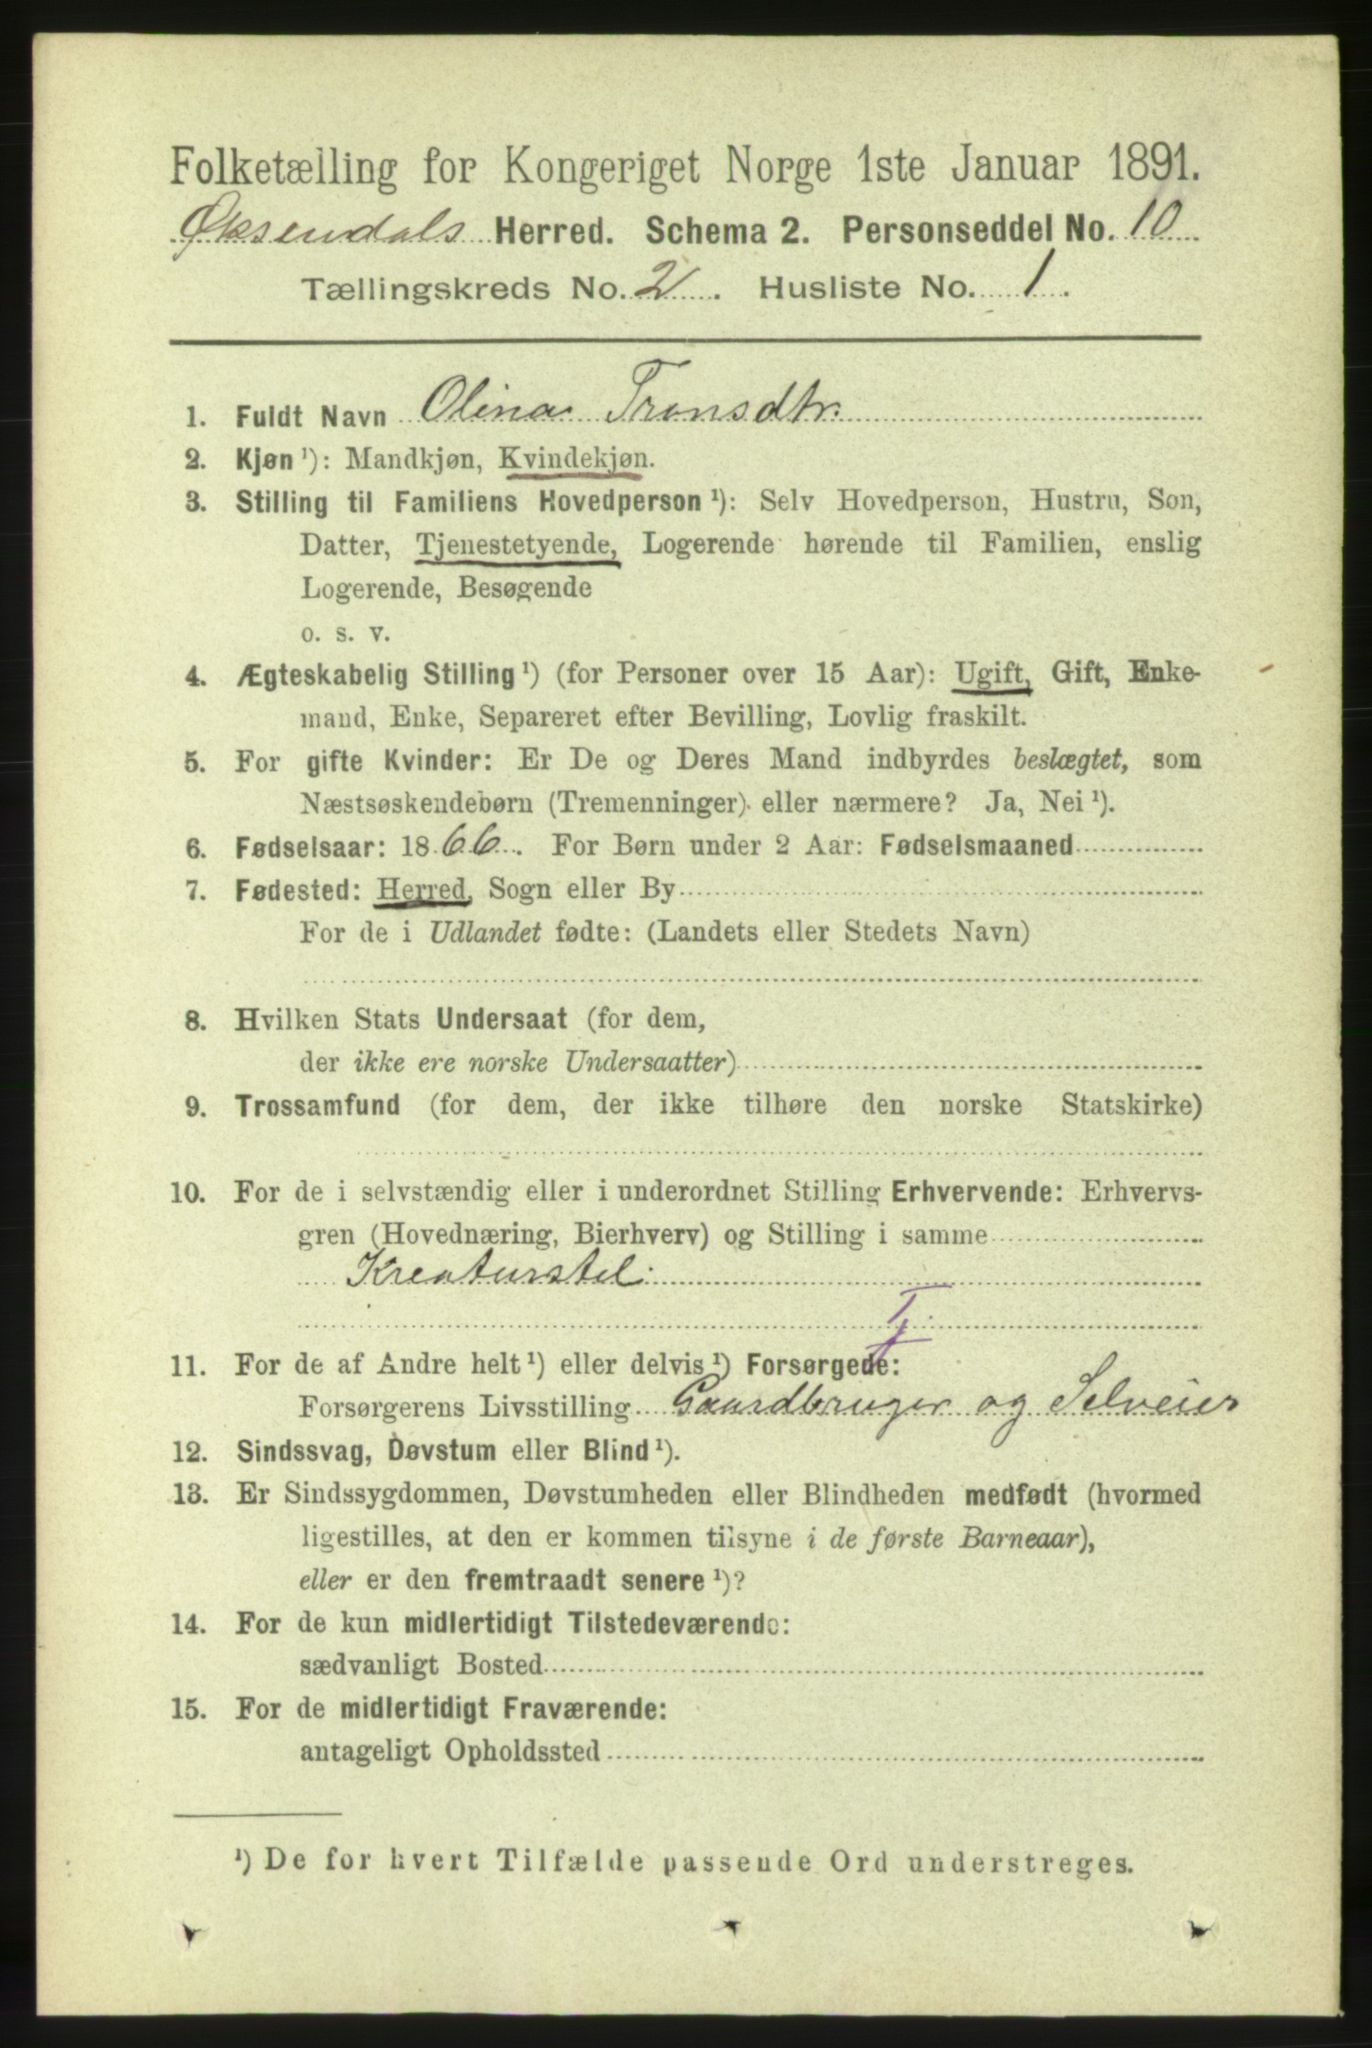 Folketælling for Kongeriget Norge 1ste Januar 1891.
Øksendals Herred. Schema 2. Personseddel No. 10
Tællingskreds No. 2. Husliste No. 1.
1. Fuldt Navn Olina Tronsdtr.
2. Kjøn ¹): Mandkjøn, Kvindekjøn.
3. Stilling til Familiens Hovedperson ¹): Selv Hovedperson, Hustru, Søn,
Datter, Tjenestetyende, Logerende hørende til Familien, enslig
Logerende, Besøgende
o. s. v.
4. Ægteskabelig Stilling ¹) (for Personer over 15 Aar): Ugift, Gift, Enke-
mand, Enke, Separeret efter Bevilling, Lovlig fraskilt.
5. For gifte Kvinder: Er De og Deres Mand indbyrdes beslægtet, som
Næstsøskendebørn (Tremenninger) eller nærmere? Ja, Nei ¹).
6. Fødselsaar: 1866. For Børn under 2 Aar: Fødselsmaaned
7. Fødested: Herred, Sogn eller By
For de i Udlandet fødte: (Landets eller Stedets Navn)
8. Hvilken Stats Undersaat (for dem,
der ikke ere norske Undersaatter)
9. Trossamfund (for dem, der ikke tilhøre den norske Statskirke)
10. For de i selvstændig eller i underordnet Stilling Erhvervende: Erhvervs-
gren (Hovednæring, Bierhverv) og Stilling i samme
Kreaturstel.
Tj.
11. For de af Andre helt ¹) eller delvis ¹) Forsørgede:
Forsørgerens Livsstilling Gaardbruger og Selveier
12. Sindssvag, Døvstum eller Blind ¹).
13. Er Sindssygdommen, Døvstumheden eller Blindheden medfødt (hvormed
ligestilles, at den er kommen tilsyne i de første Barneaar),
eller er den fremtraadt senere ¹)?
14. For de kun midlertidigt Tilstedeværende:
sædvanligt Bosted
15. For de midlertidigt Fraværende:
antageligt Opholdssted
¹) De for hvert Tilfælde passende Ord understreges.